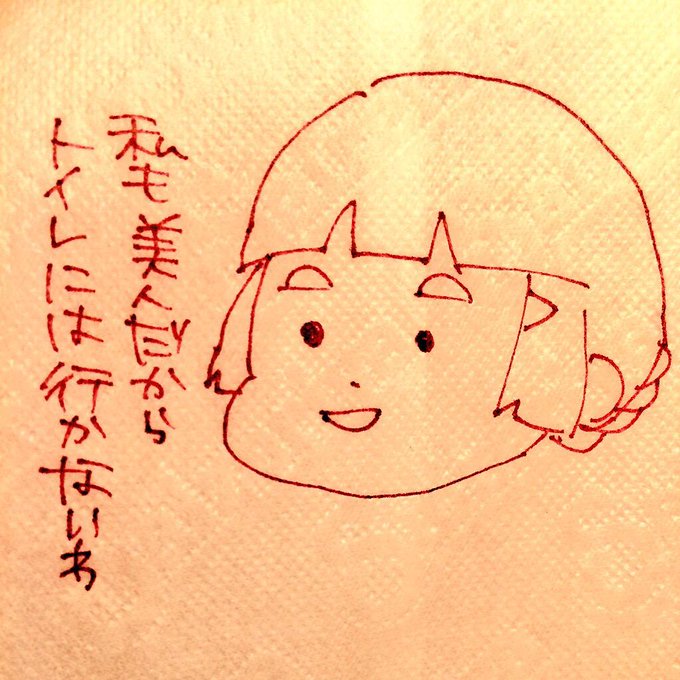 私も美人だから
トイレには行かないわ